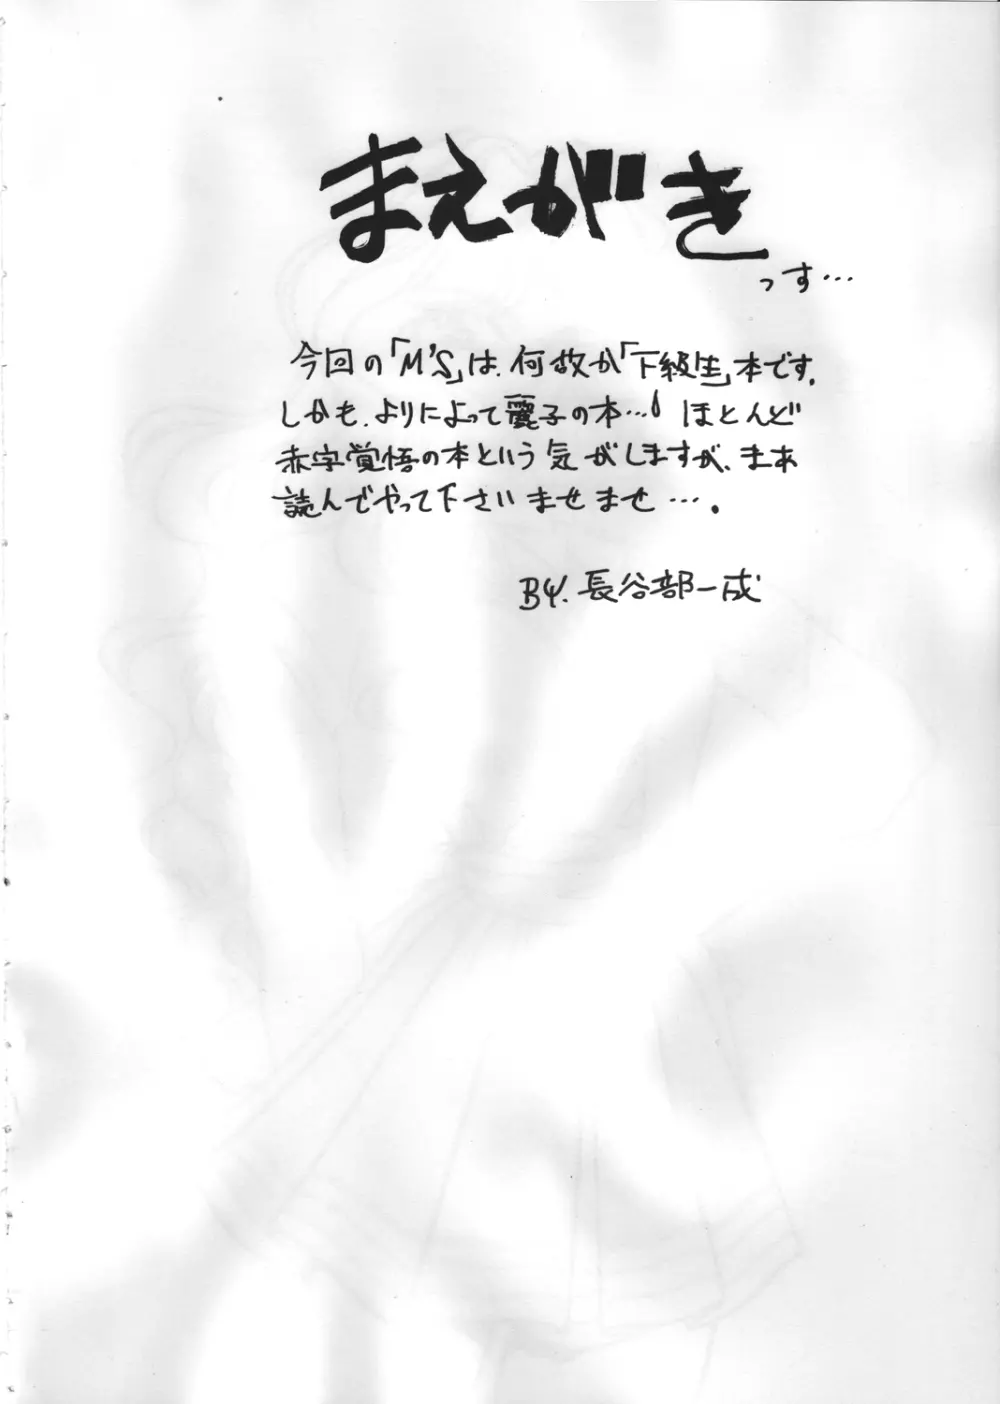 まえがき
っす…
今回の「M'S」は、何故か「下級生」本です。
しかも、よりによって麗子の本… ほとんど
赤字覚悟の本という気がしますが、まあ
読んでやって下さいませませ…。
BY. 長谷部一成